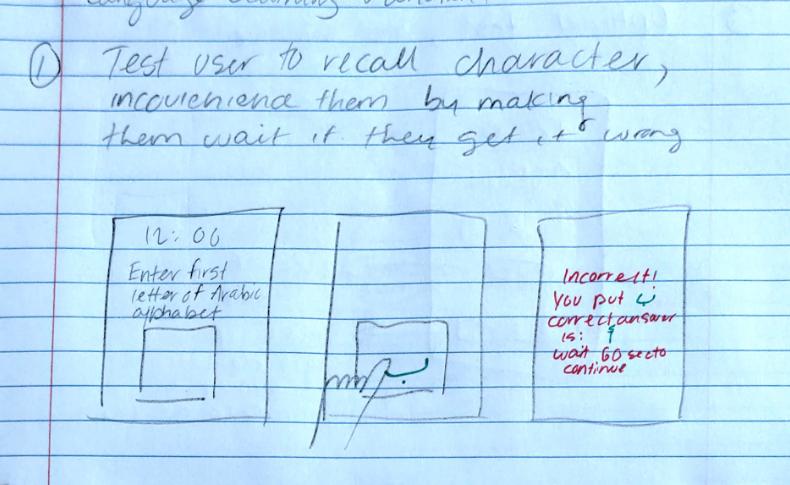 language learning
① Test user to recall character,
incovienience them by making
them wait if they get it wrong
12:06
Enter first
letter of Arabic
alphabet
ب
Incorrect!
You put ب
correct answer
is: أ
wait 60 sec to
continue